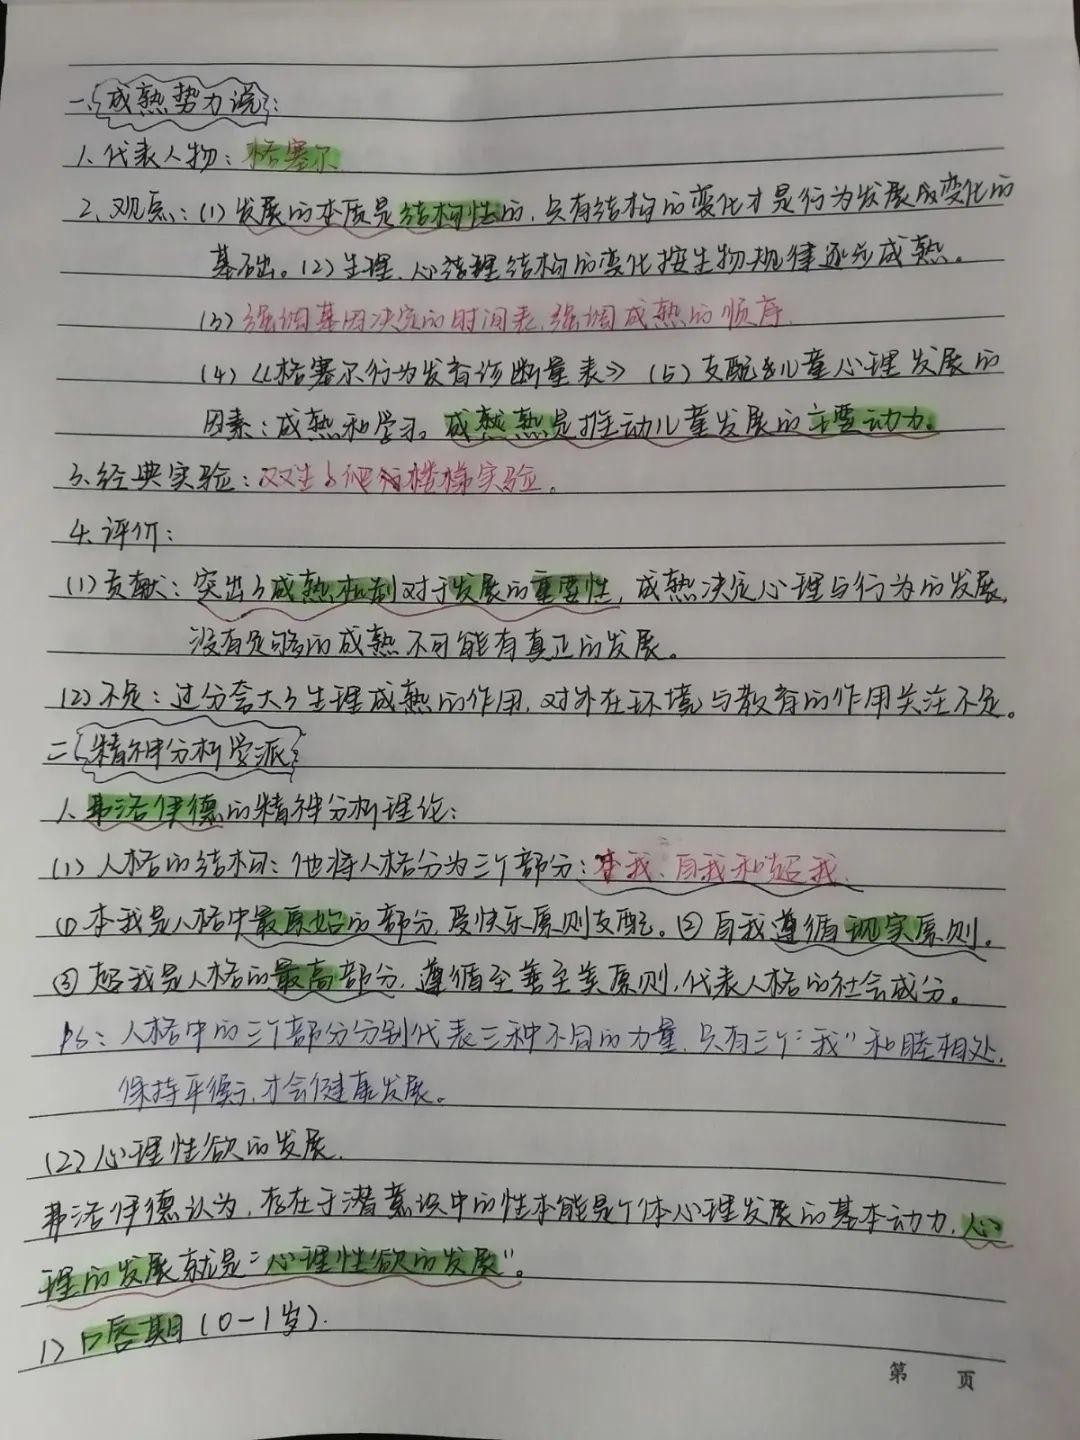 一、成熟势力说：
1、代表人物：格塞尔
2、观点：(1)发展的本质是结构性的，只有结构的变化才是行为发展变化的
基础。(2)生理、心理结构的变化按生物规律逐步成熟。
(3)强调基因决定的时间表，强调成熟的顺序.
(4)《格塞尔行为发育诊断量表》(5)支配儿童心理发展的
因素：成熟和学习。成熟是推动儿童发展的主要动力。
3、经典实验：双生子爬楼梯实验。
4、评价：
(1)贡献：突出了成熟机制对于发展的重要性，成熟决定心理与行为的发展，
没有足够的成熟不可能有真正的发展。
(2)不足：过分夸大了生理成熟的作用，对外在环境与教育的作用关注不足。
二、精神分析学派：
1、弗洛伊德的精神分析理论：
(1)人格的结构：他将人格分为三个部分：本我、自我和超我.
①本我是人格中最原始的部分，受快乐原则支配。②自我遵循现实原则。
③超我是人格的最高部分，遵循至善至美原则，代表人格的社会成分。
PS：人格中的三个部分分别代表三种不同的力量，只有三个“我”和睦相处，
保持平衡，才会健康发展。
(2)心理性欲的发展.
弗洛伊德认为，存在于潜意识中的性本能是个体心理发展的基本动力，心
理的发展就是“心理性欲的发展”。
1)口唇期(0-1岁).
第 页